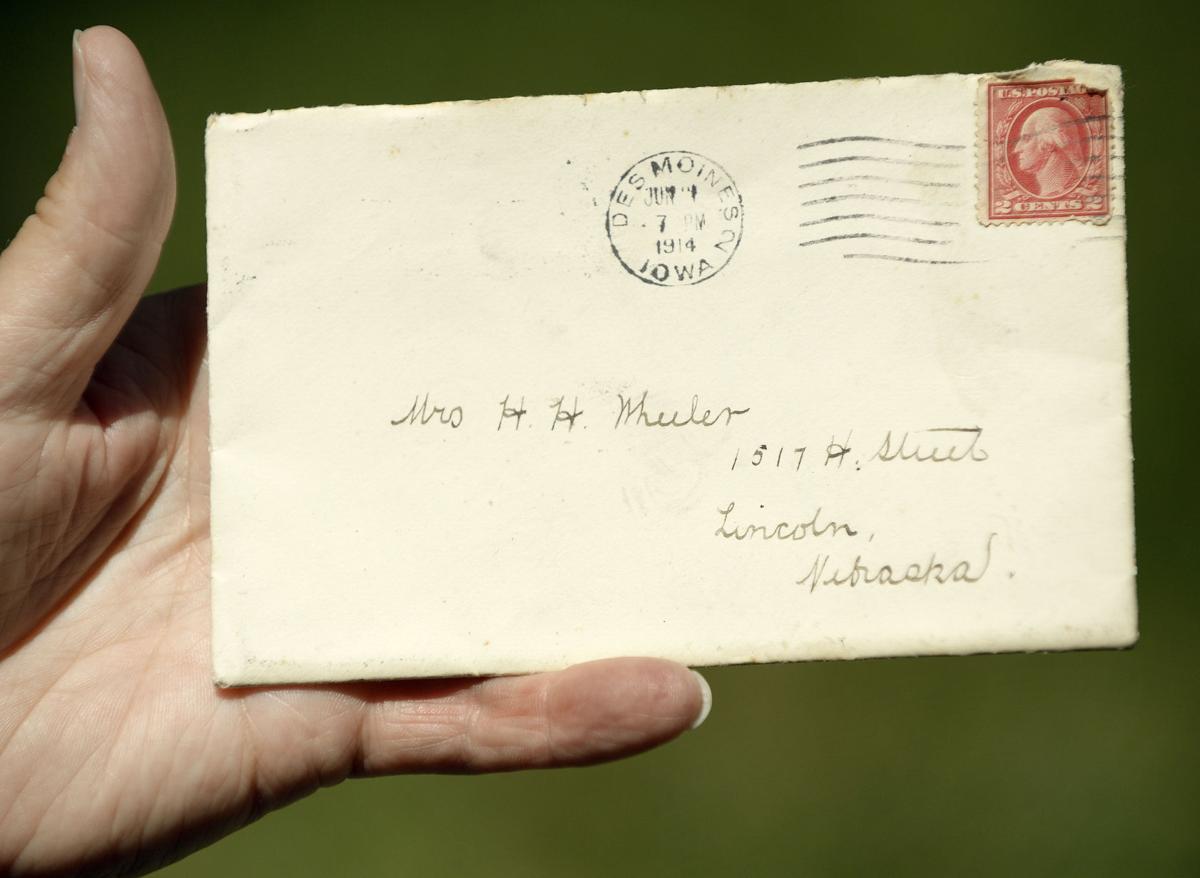 U.S. POSTAGE
2 CENTS 2
DES MOINES
JUN
7 PM
1914
IOWA
Mrs H. H. Wheeler
1517 H. Street
Lincoln,
Nebraska.